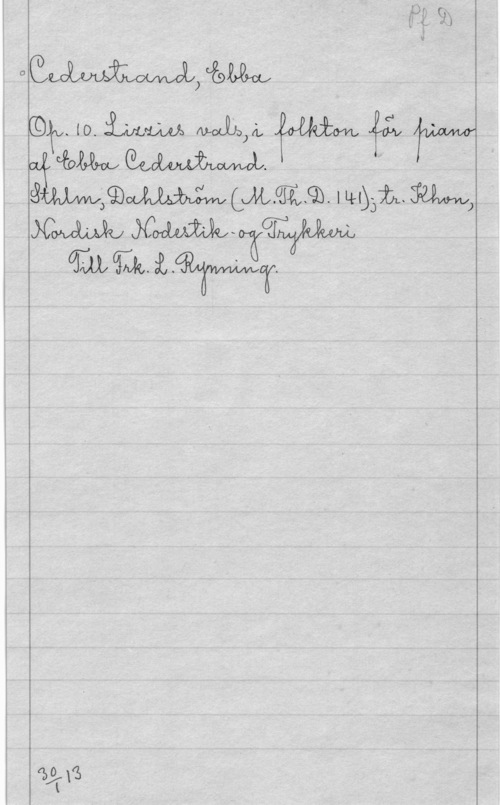 Pf D
Cederstrand, Ebba
Op. 10. Lizzies vals, i folkton för piano
af Ebba Cederstrand.
Sthlm, Dahlström (M.Th.D. 141); tr. Khvn,
Nordisk Nodestik- og Trykkeri
Till Frk. L. Rynning.
30/1 13